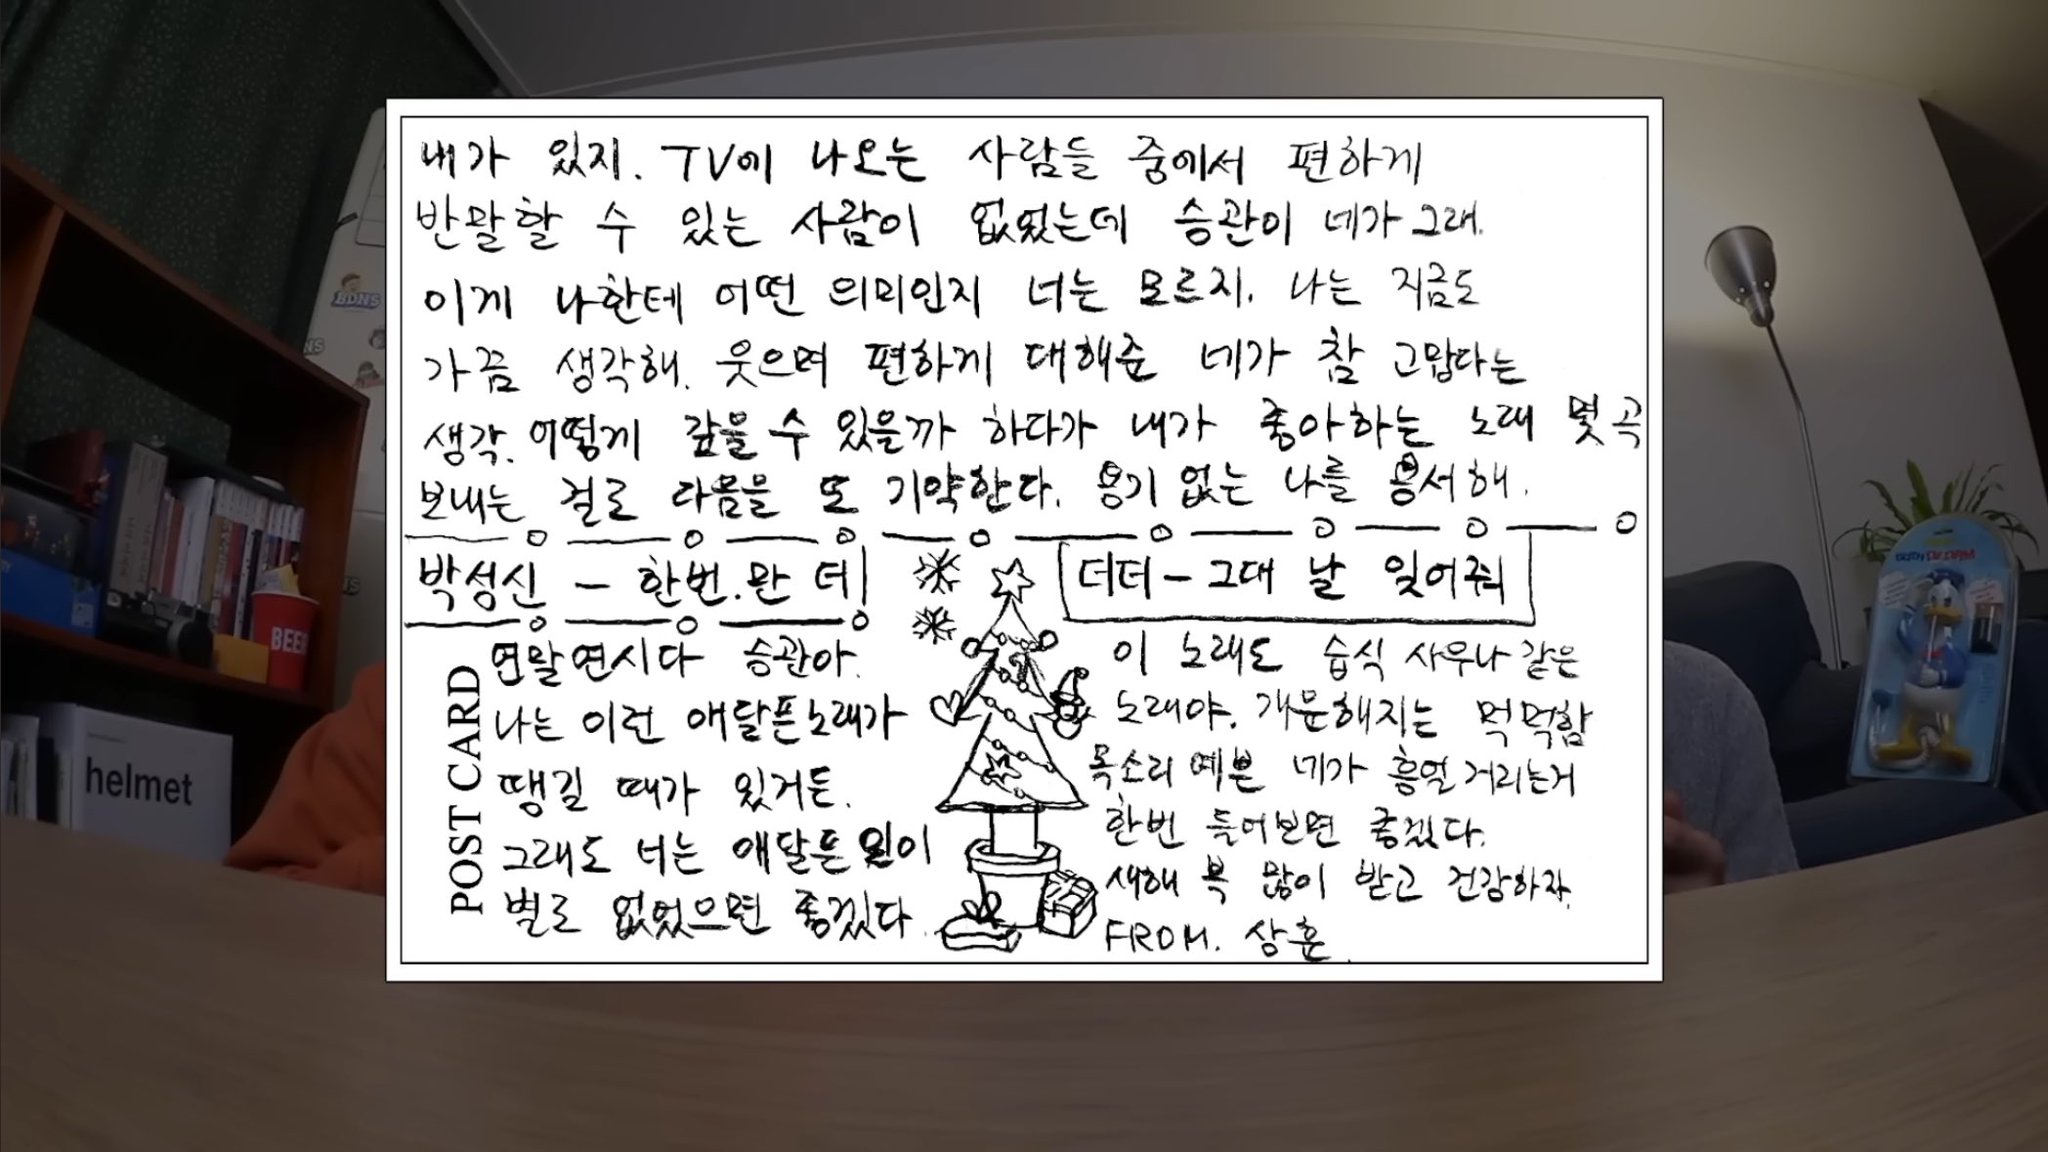 내가 있지. TV에 나오는 사람들 중에서 편하게
반말할 수 있는 사람이 없었는데 승관이 네가 그래.
이게 나한테 어떤 의미인지 너는 모르지. 나는 지금도
가끔 생각해. 웃으며 편하게 대해준 네가 참 고맙다는
생각. 어떻게 갚을 수 있을까 하다가 내가 좋아하는 노래 몇곡
보내는 걸로 다음을 또 기약한다. 용기 없는 나를 용서해.
박성신 - 한번.만 더!
연말연시다 승관아.
나는 이런 애달픈노래가
땡길 때가 있거든.
그래도 너는 애달픈 일이
별로 없었으면 좋겠다.
더더 - 그대 날 잊어줘
이 노래도 습식 사우나 같은
노래야. 개운해지는 먹먹함
목소리 예쁜 네가 흥얼거리는거
한번 들어보면 좋겠다.
새해 복 많이 받고 건강하자.
FROM. 상훈.
POST CARD
BDNS
NS
BEER
helmet